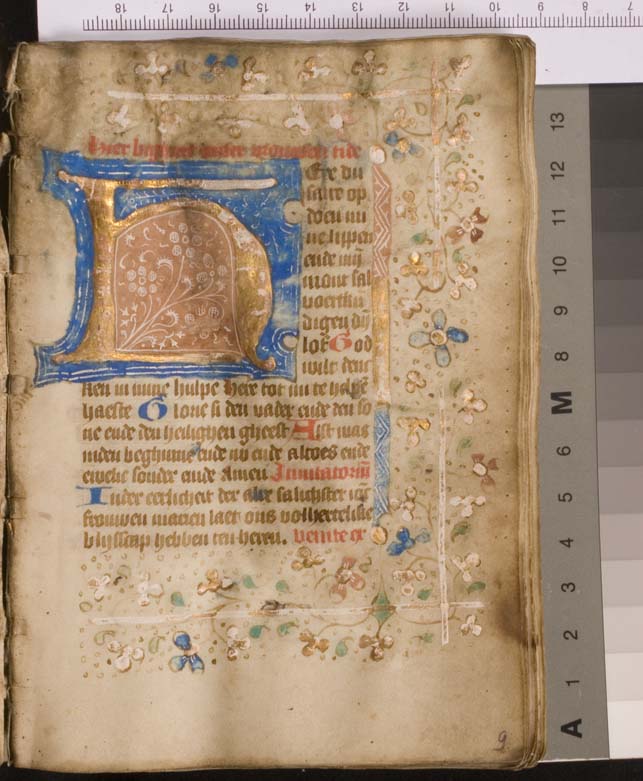 Hier beghint onser vrouwen tide
Ere du
salte op
doen mi
ne lippen
ende mijn
mont sal
voertkun
digen dijn
lof God
wilt denc
ken in mine hulpe here tot mi te helpen
haeste Glorie si den vader ende den so
ne ende den heilighen gheest Alst was
inden beghinne ende nv ende altoes ende
ewelic sonder ende Amen Inuitatorium
Inder eerlicheit der alre salichster ioc
frouwen marien laet ons volhertelike
blijscap hebben ten heren. venite ex
9
18 17 16 15 14 13 12 11 10 9 8 7
13
12
11
10
9
8
M
6
5
4
3
2
1
A